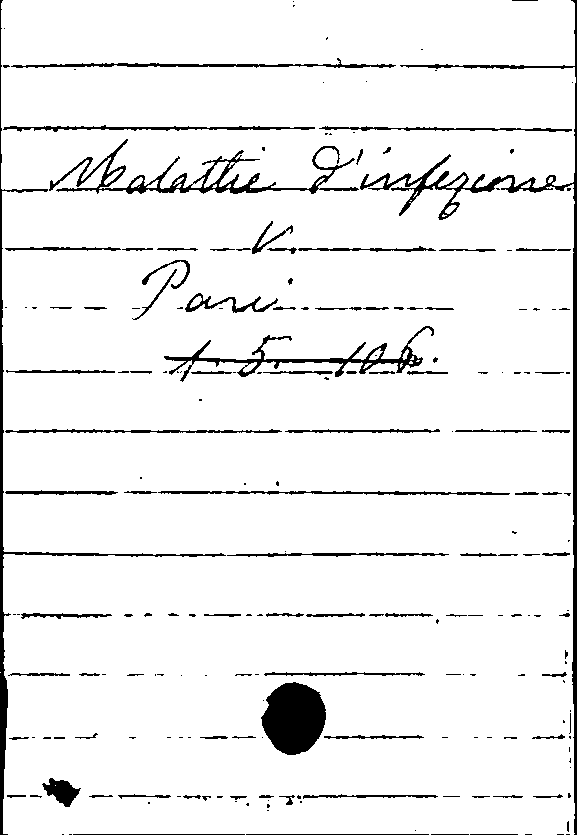 Malattie d'infezione
v.
Pari
1. 5. 106.